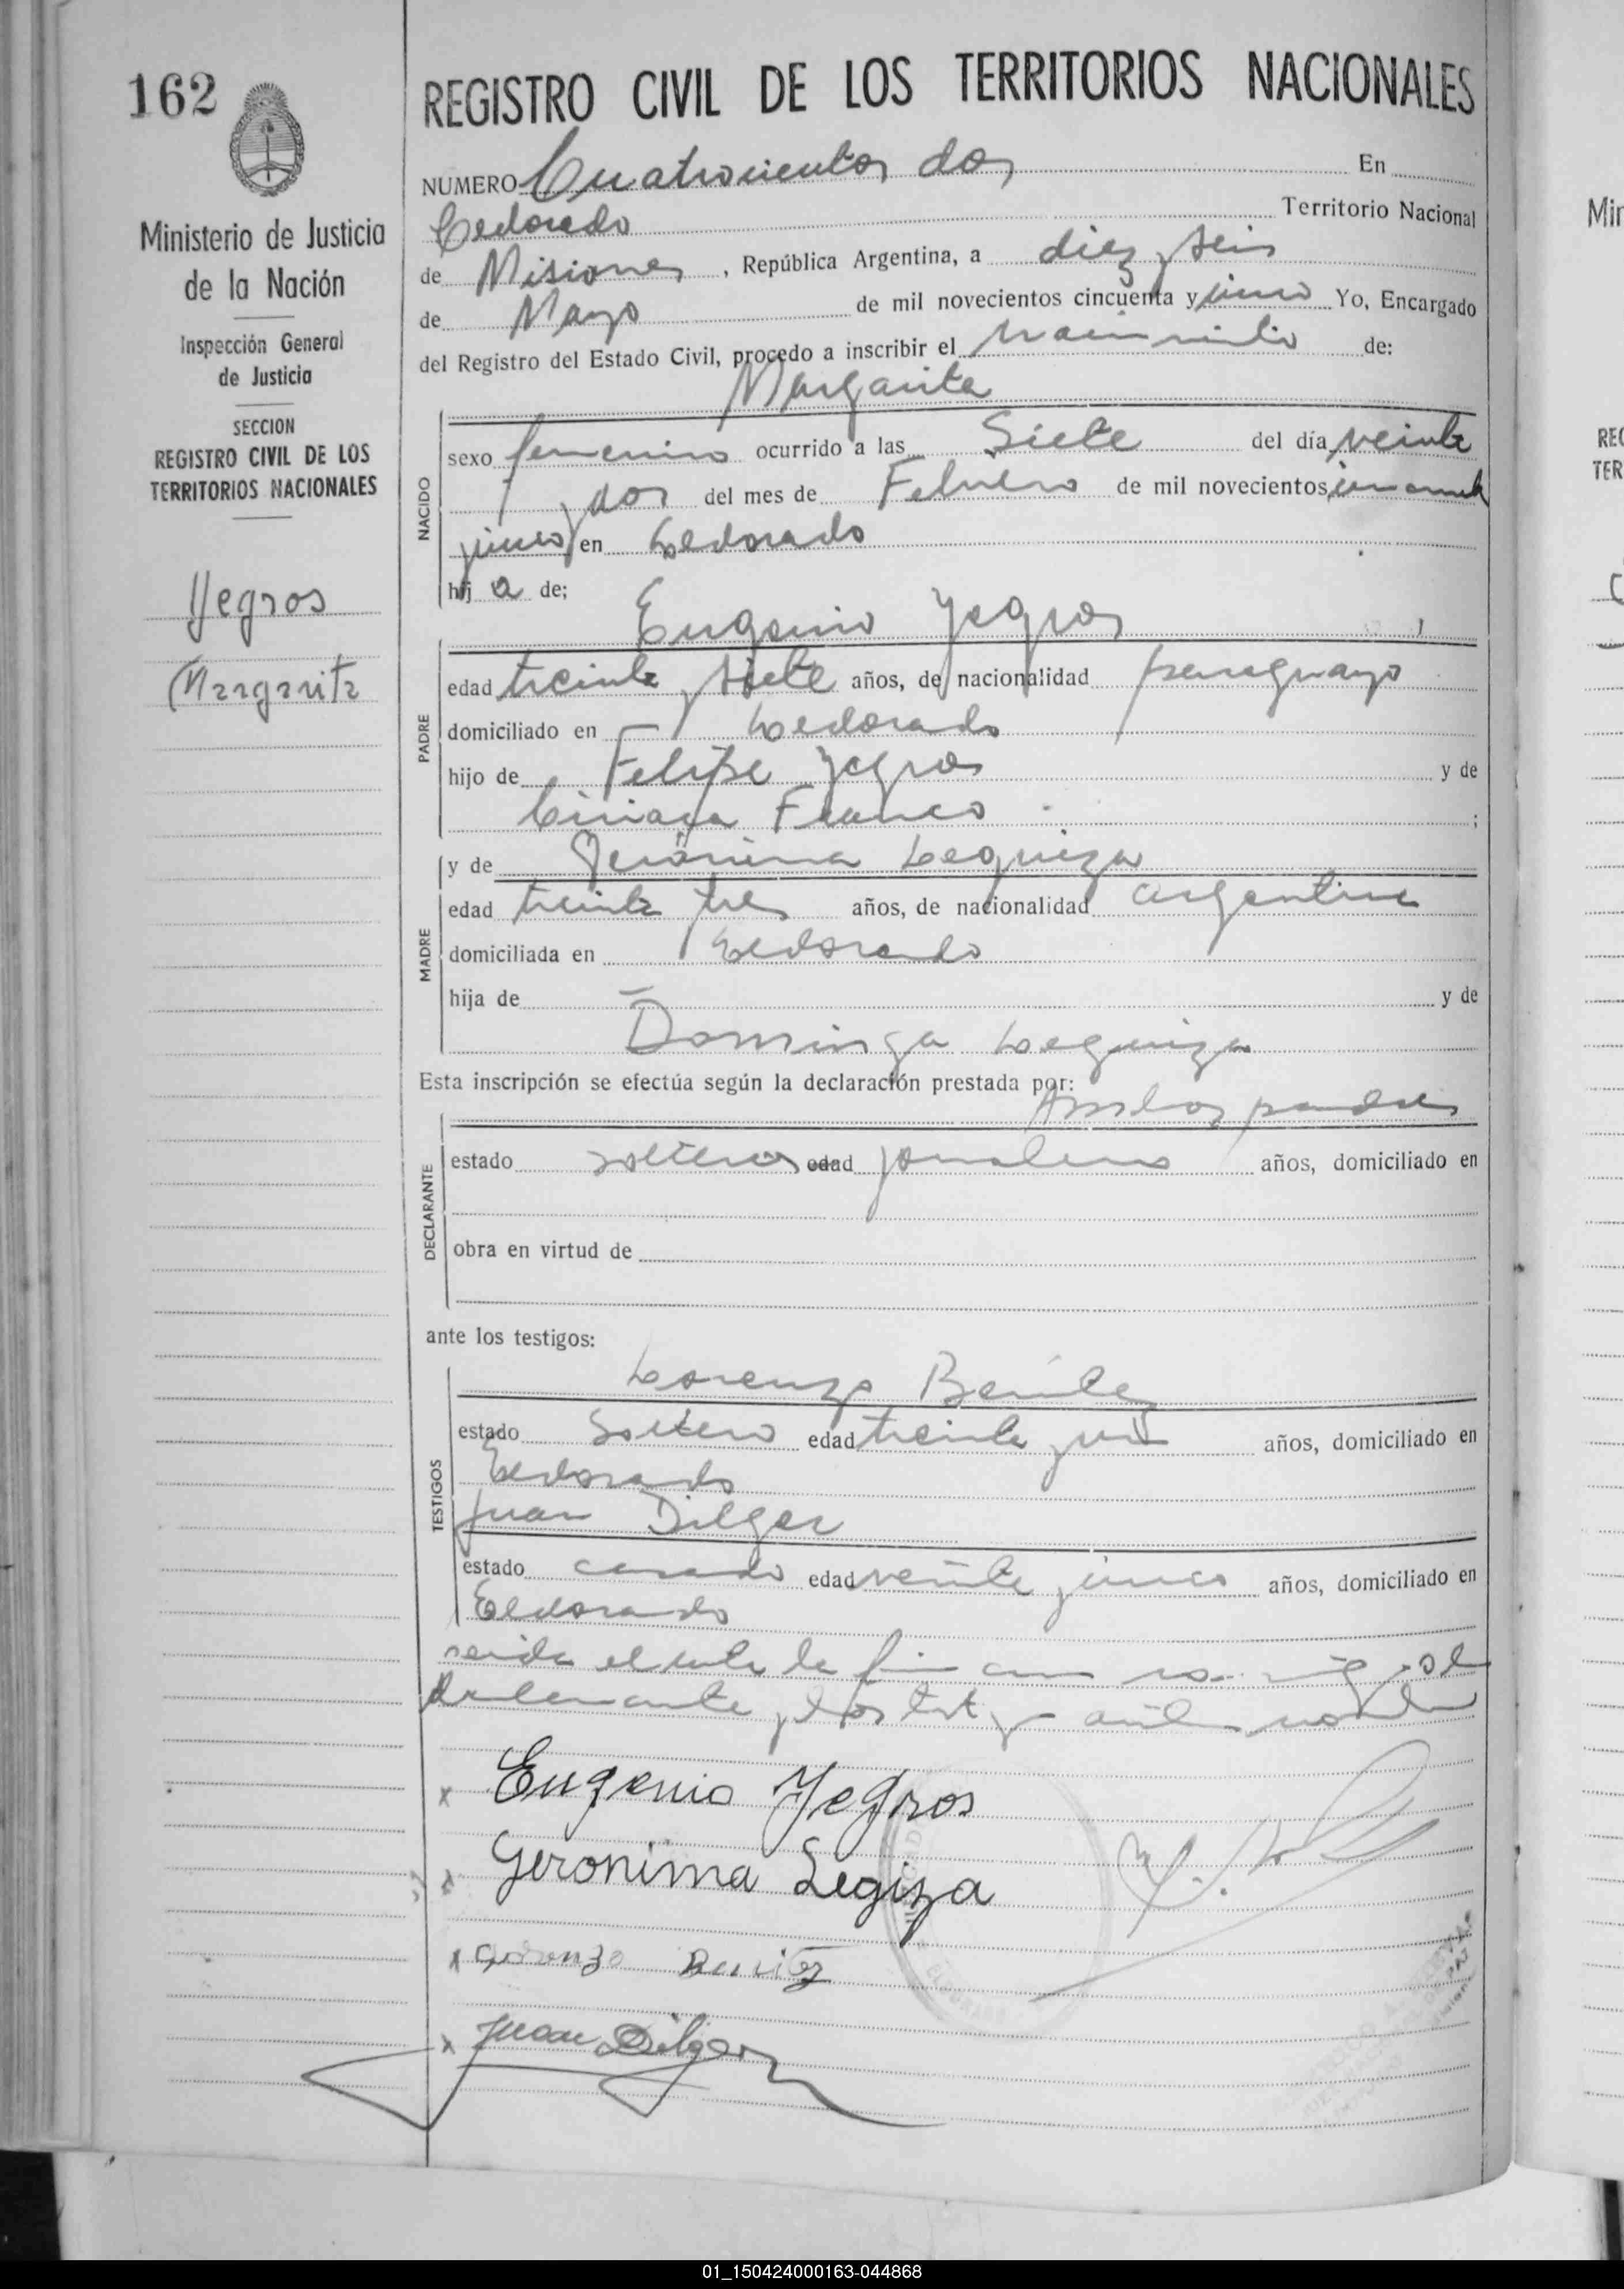 162
Ministerio de Justicia
de la Nación
Inspección General
de Justicia
SECCION
REGISTRO CIVIL DE LOS
TERRITORIOS NACIONALES
Yegros
Margarita
REGISTRO CIVIL DE LOS TERRITORIOS NACIONALES
NUMERO Cuatrocientos dos En
Eldorado Territorio Nacional
de Misiones , República Argentina, a diez y seis
de Mayo de mil novecientos cincuenta y cinco Yo, Encargado
del Registro del Estado Civil, procedo a inscribir el nacimiento de:
Margarita
NACIDO
sexo femenino ocurrido a las Siete del día veinte
y dos del mes de Febrero de mil novecientos cincuenta
y cinco en Eldorado
hij a de;
Eugenio Yegros
PADRE
edad treinta y siete años, de nacionalidad paraguayo
domiciliado en Eldorado
hijo de Felipe Yegros y de
Ciriaca Franco ;
y de Jerónima Leguiza
MADRE
edad treinta y tres años, de nacionalidad argentina
domiciliada en Eldorado
hija de — y de
Dominga Leguiza
Esta inscripción se efectúa según la declaración prestada por:
Ambos padres
DECLARANTE
estado solteros edad jornalero años, domiciliado en
obra en virtud de
ante los testigos:
TESTIGOS
Lorenzo Benitez
estado Soltero edad treinta y un años, domiciliado en
Eldorado
Juan Dilger
estado casado edad veinte y cinco años, domiciliado en
Eldorado
el acta la firman
declarante y los
x Eugenio Yegros
x Geronima Legiza
x Lorenzo Benitez
x Juan Dilger
ELDORADO
01_150424000163-044868